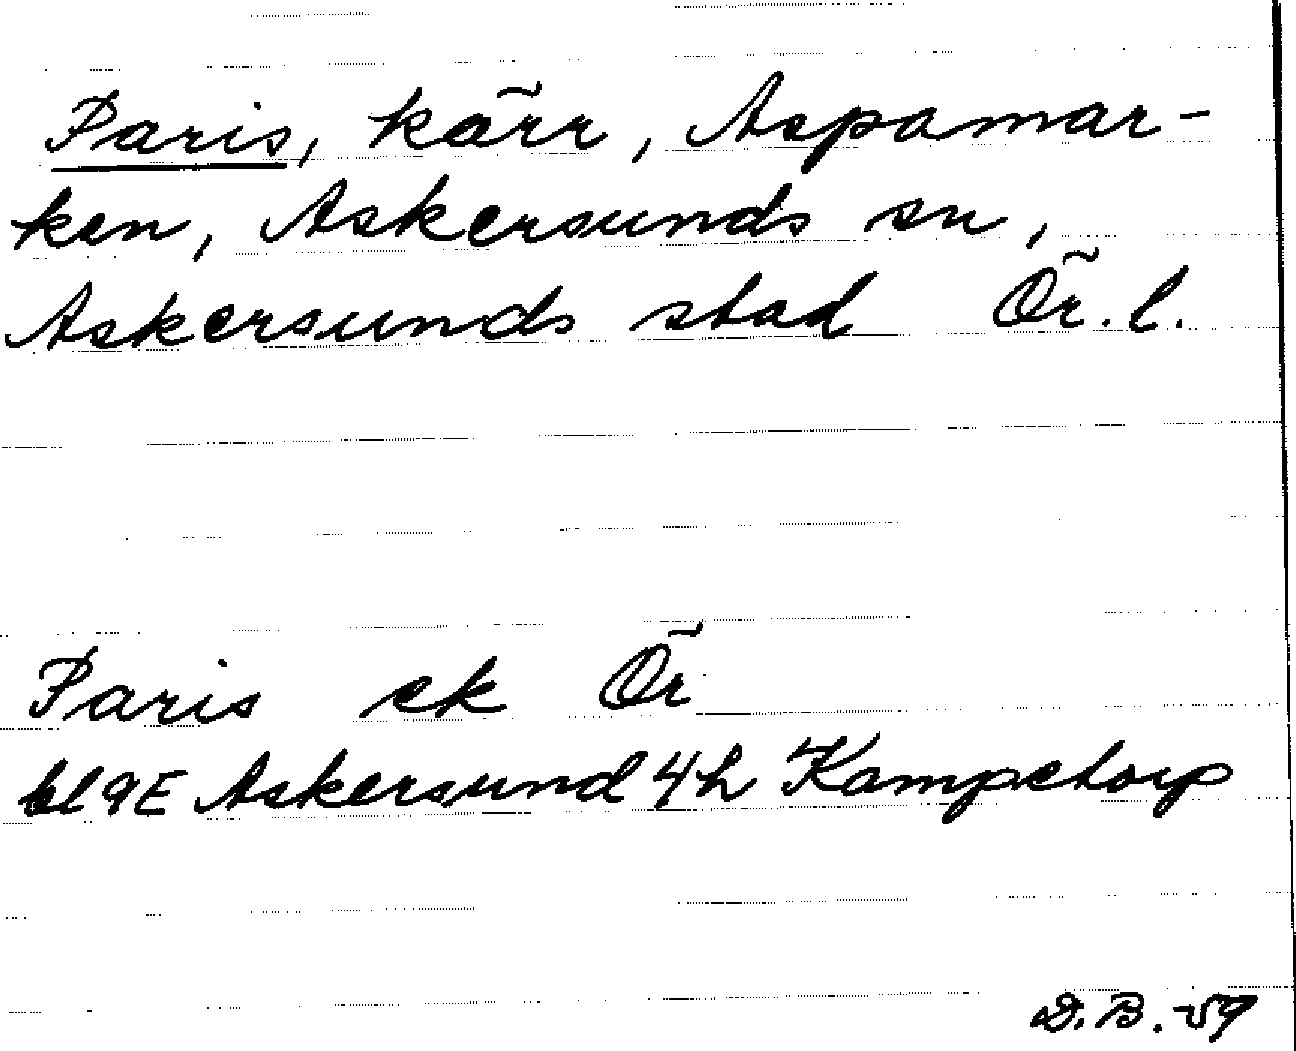 Paris, kärr, Aspamar-
ken, Askersunds sn,
Askersunds stad Ör. l.
Paris ek Ör
bl 9E Askersund 4h Kampetorp
D.B. -59